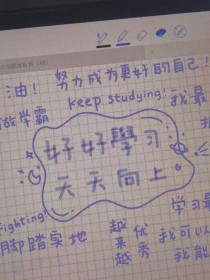 油！ 努力成为更好的自己！
做学霸 keep studying! 我最
好好學习
天天向上
Fighting! 学习最
脚踏实地 越来越优秀 我可以
我能